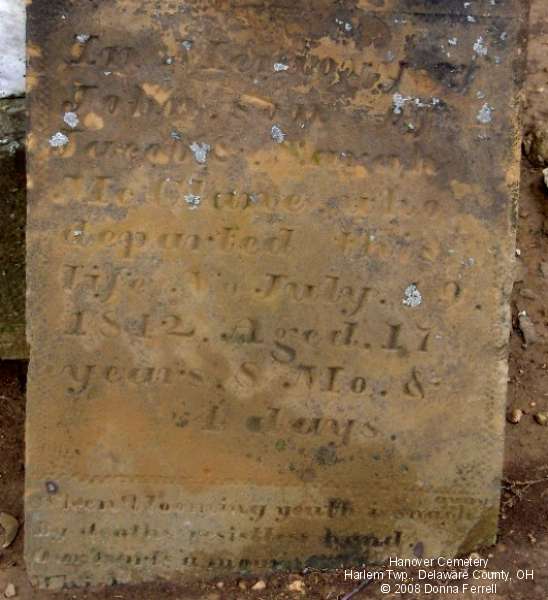 In Memory of
John son of
Jacob & Sarah
Mc Clane who
departed this
life July. 9.
1842. Aged. 17
years. 8 Mo. &
4 days.
away
When blooming youth is snach
By deaths resistless hand.
Our hearts
Hanover Cemetery
Harlem Twp., Delaware County, OH
© 2008 Donna Ferrell